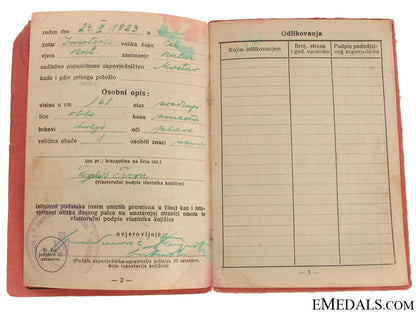 rođen dne 24. II 1923 u
kotar Imotski velika župa
vjera Rkt. zanimanje
nadležno popunitbeno zapovjedničtvo Mostar
kada i gdje prisegu položio
Osobni opis:
visina u cm 168 stas srednji
lice oblo kosa smeđa
brkovi brije oči plave
veličina obuće osobiti znaci
(na pr.; brazgotina na čelu itd.)
(vlastoručni podpis vlastnika knjižice)
Istinitost podataka (osim unietih promjena u činu) kao i isto-
vjetnost otiska desnog palca na unutarnjoj stranici omota te
vlastoručni podpis vlastnika knjižice
ovjerovljuje
(Podpis zapovjednika-upravitelja jedinice ili ustanove,
koja izpostavlja knjižicu)
— 2 —
Odlikovanja
Kojim odlikovanjem
Broj, strana
i god. vjestnika
Podpis pododjel-
nog zapovjednika
— 3 —
© EMEDALS.COM